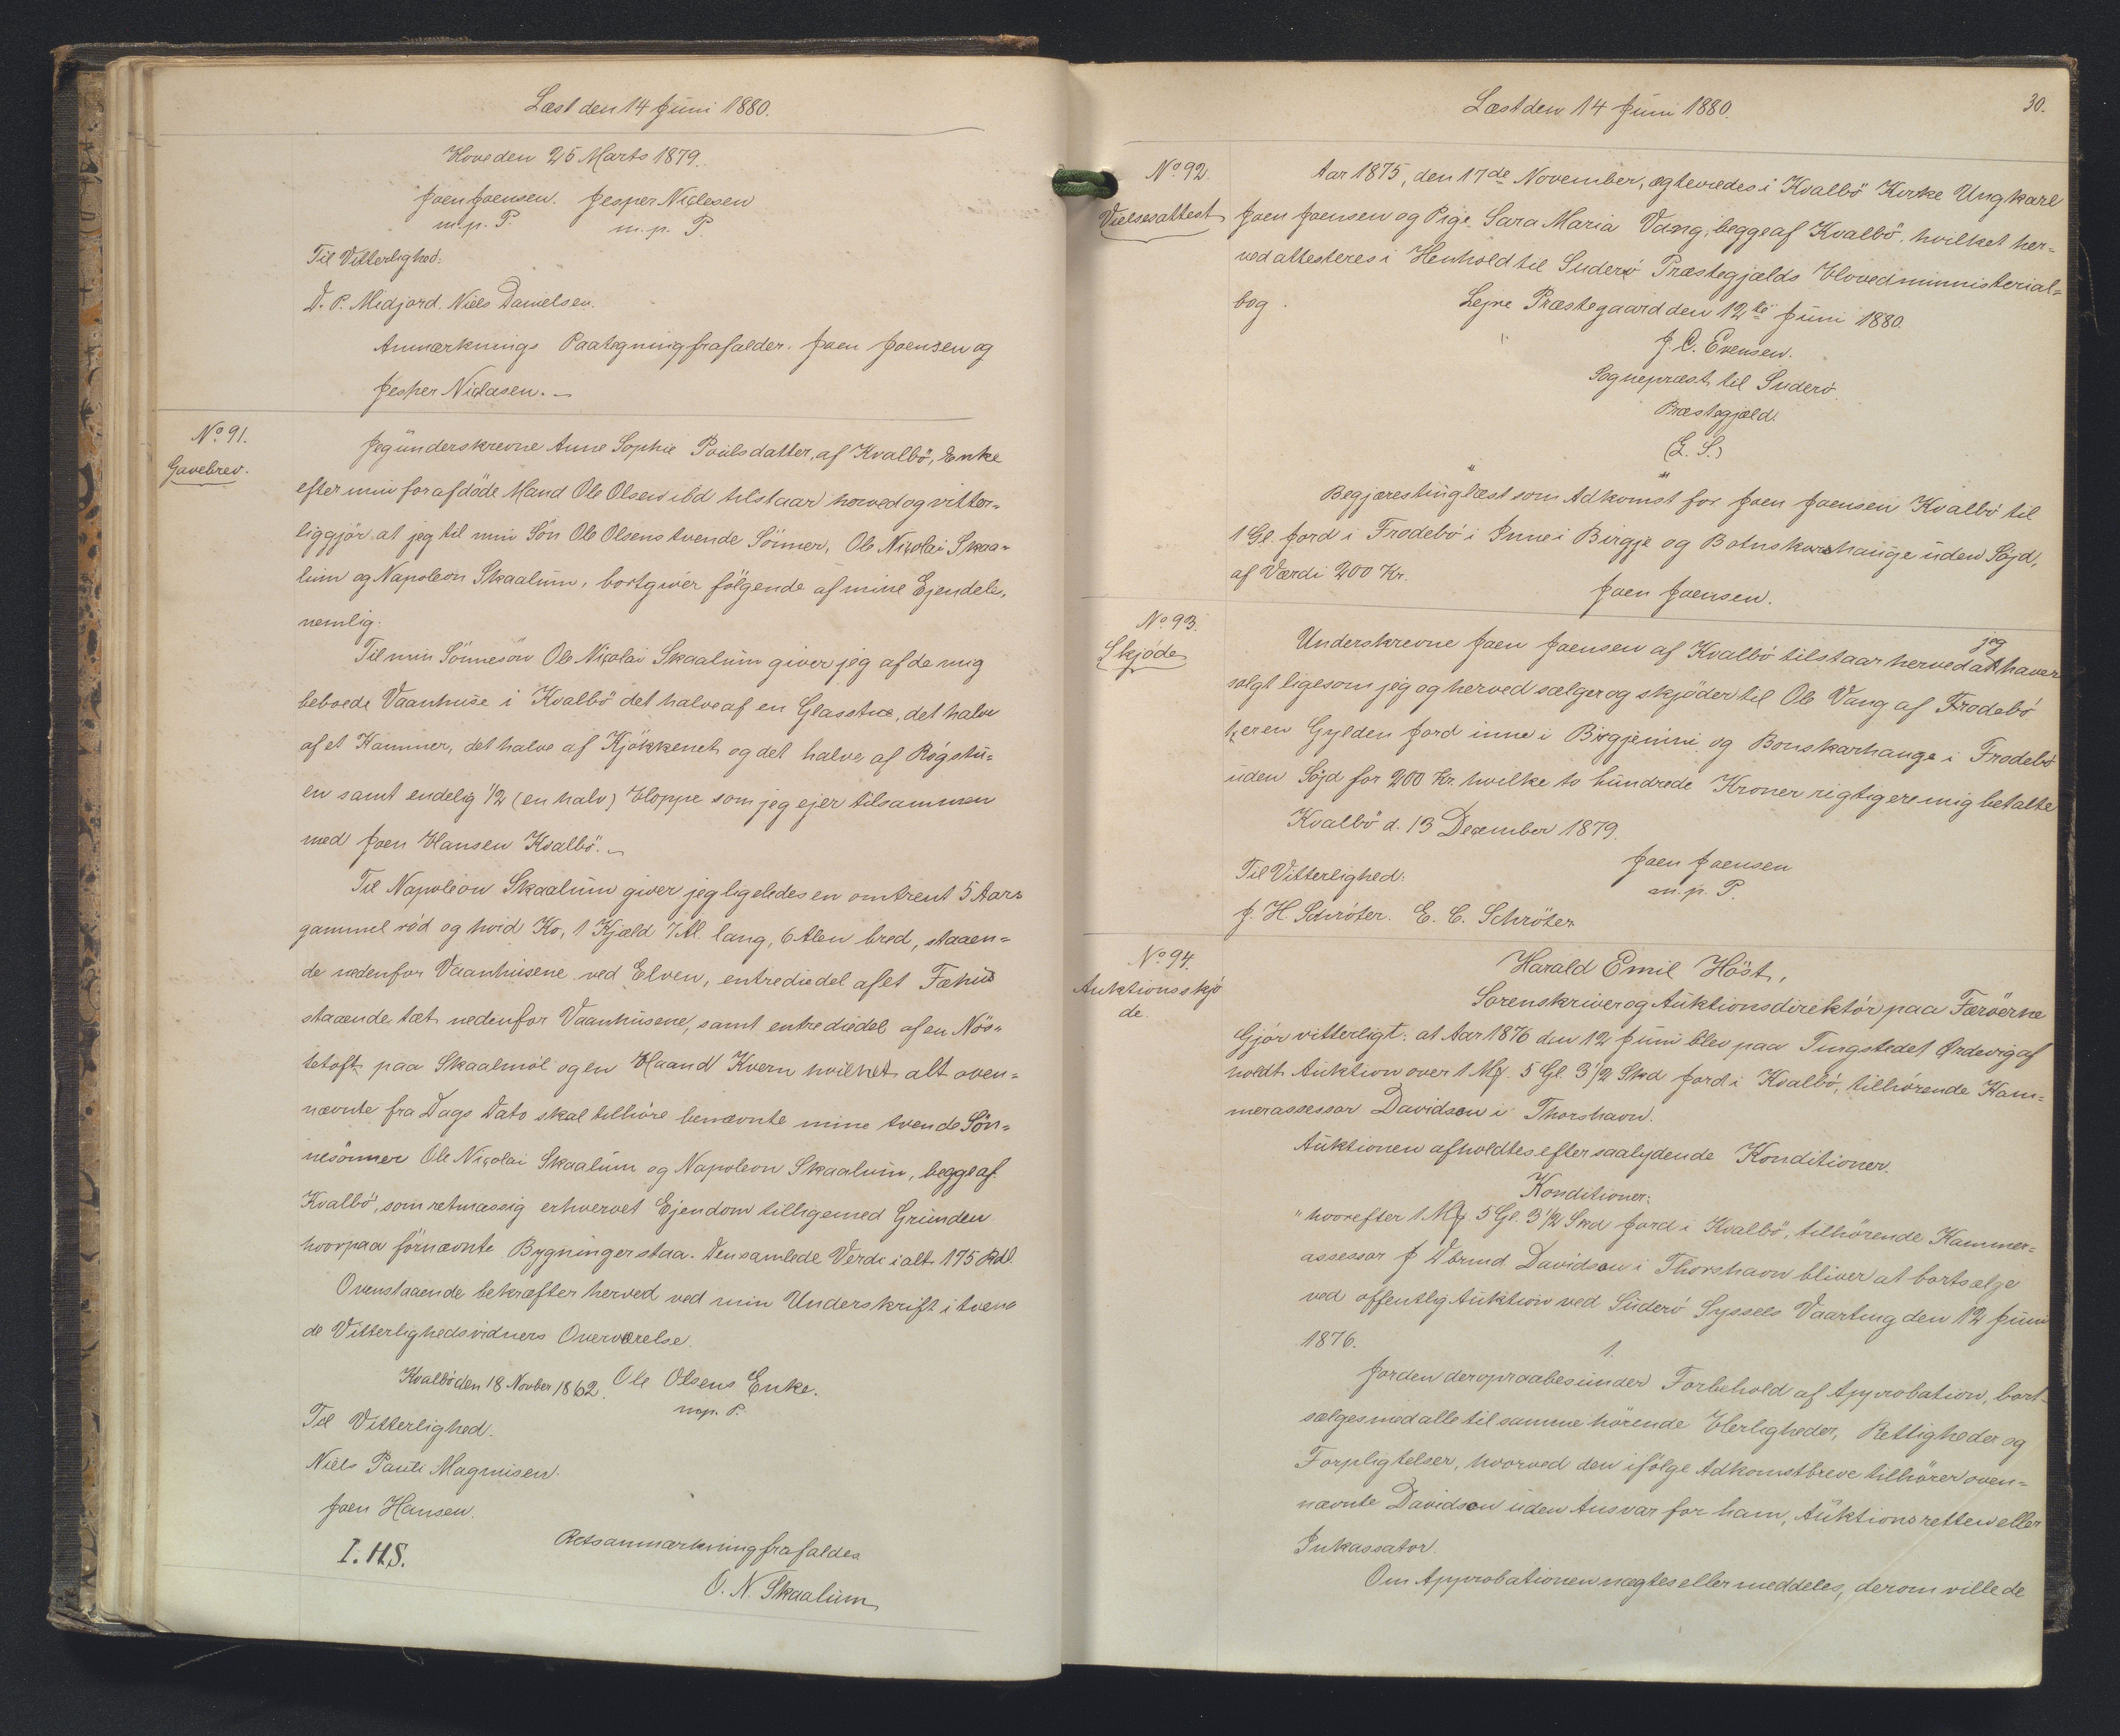 Læst den 14 Juni 1880.
Hove den 25 Marts 1879.
Joen Joensen. Jesper Niclesen
m. p. P. m. p. P.
Til Vitterlighed:
D. P. Midjord. Niels Danielsen.
Anmærknings Paategning frafalder. Joen Joensen og
Jesper Niclasen.
No 91.
Gavebrev.
Jeg underskrevne Anne Sophie Poulsdatter, af Kvalbö, Enke
efter min forafdöde Mand Ole Olsen ibd tilstaar herved og vitter-
liggjör at jeg til min Sön Ole Olsens tvende Sönner, Ole Nicolai Skaa-
lum og Napoleon Skaalum, bortgiver fölgende af mine Ejendele,
nemlig:
Til min Sönnesön Ole Nicolai Skaalum giver jeg af de mig
beboede Vaanhuse i Kvalbö det halve af en Glasstue, det halve
af et Kammer, det halve af Kjökkenet og det halve af Rögstu-
en samt endelig 1/2 (en halv) Hoppe som jeg ejer tilsammen
med Joen Hansen Kvalbö.
Til Napoleon Skaalum giver jeg ligeledes en omtrent 5 Aars
gammel röd og hvid Ko, 1 Kjæld 7 Al. lang, 6 Alen bred, staaen-
de nedenfor Vaanhusene ved Elven, entrediedel af et Fæhus
staaende tæt nedenfor Vaanhusene, samt entrediedel af en Nös-
tetoft paa Skaalmöl og en Haand Kvern hvilket alt oven-
nævnte fra Dags Dato skal tilhöre benævnte mine tvende Sön-
nesönner Ole Nicolai Skaalum og Napoleon Skaalum, begge af
Kvalbö, som retmæssig erhvervet Ejendom tilligemed Grunden
hvorpaa förnævnte Bygninger staa. Den samlede Verdi i alt 175 Rdl.
Ovenstaaende bekræfter herved ved min Underskrift i tven
de Vitterlighedsvidners Overværelse.
Kvalbö den 18 Novber 1862. Ole Olsens Enke.
m. p. P.
Til Vitterlighed.
Niels Pauli Magnusen.
Joen Hansen.
I. H. S.
Retsanmærkning frafaldes
O. N. Skaalum
Læst den 14 Juni 1880.
30.
No 92.
Vielsesattest
Aar 1875, den 17de November, ægteviedes i Kvalbö Kirke Ungkarl
Joen Joensen og Pige Sara Maria Vang, begge af Kvalbö, hvilket her-
ved attesteres i Henhold til Suderö Præstegjælds Hovedministerial-
bog. Lejne Præstegaard den 12te Juni 1880.
J. C. Evensen.
Sognepræst til Suderö
Præstegjæld.
(L. S.)
Begjæres tinglæst som Adkomst for Joen Joensen Kvalbö til
1 Gl. Jord i Frodebö i Inne i Birgje og Botnskorahauge uden Söjd,
af Værdi 200 Kr.
Joen Joensen.
No 93.
Skjöde
Underskrevne Joen Joensen af Kvalbö tilstaar herved at jeg haver
solgt ligesom jeg og herved sælger og skjöder til Ole Vang af Frodebö
1, er en Gylden Jord inne i Birgjeninni og Bonskarhauge i Frodebö
uden Söjd for 200 Kr. hvilke to hundrede Kroner rigtig ere mig betalte
Kvalbö d. 13 December 1879.
Joen Joensen
m. p. P.
Til Vitterlighed:
J. H. Schröter. E. C. Schröter
No 94.
Auktionsskjö
de.
Harald Emil Höst,
Sorenskriver og Auktionsdirektör paa Færöerne
Gjör vitterligt: at Aar 1876 den 12 Juni blev paa Tingstedet Ördevig af
holdt Auktion over 1 Mk. 5 Gl. 3 1/2 Skd Jord i Kvalbö, tilhörende Kam-
merassessor Davidsen i Thorshavn.
Auktionen afholdtes efter saalydende Konditioner.
Konditioner:
"hvorefter 1 Mk 5 Gl. 3 1/2 Skd Jord i Kvalbö, tilhörende Kammer-
assessor J Davidsen i Thorshavn bliver at bortsælge
ved offentlig Auktion ved Suderö Syssels Vaarting den 12 Juni
1876.
1.
Jorden der opraabes under Forbehold af Approbation, bort-
sælges med alle til samme hörende Herligheder, Rettigheder og
Forpligtelser, hvorved den ifölge Adkomstbreve tilhörer oven-
nævnte Davidsen uden Ansvar for ham, Auktionsretten eller
Inkassator.
Om Approbationen nægtes eller meddeles, derom ville de